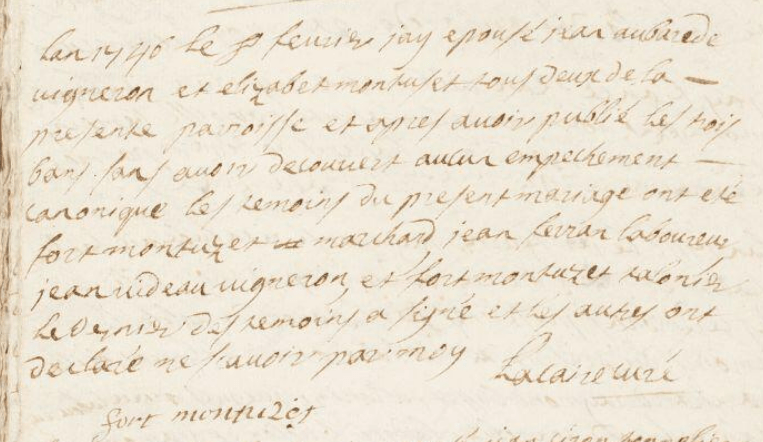 lan 1746 le 8 fevrier jay epousé jean aubarede
vigneron et elizabet montuset tous deux de la —
presente parroisse et apres avoir publié les trois
bans sans avoir decouvert aucun empechement —
canonique les temoins du present mariage ont eté
fort montuzet marchand jean ferran laboureur
jean videau vigneron, et fort montuzet
le dernier des temoins a signé et les autres ont
declaré ne sçavoir par moy Lacaze curé
fort montuzet
jean